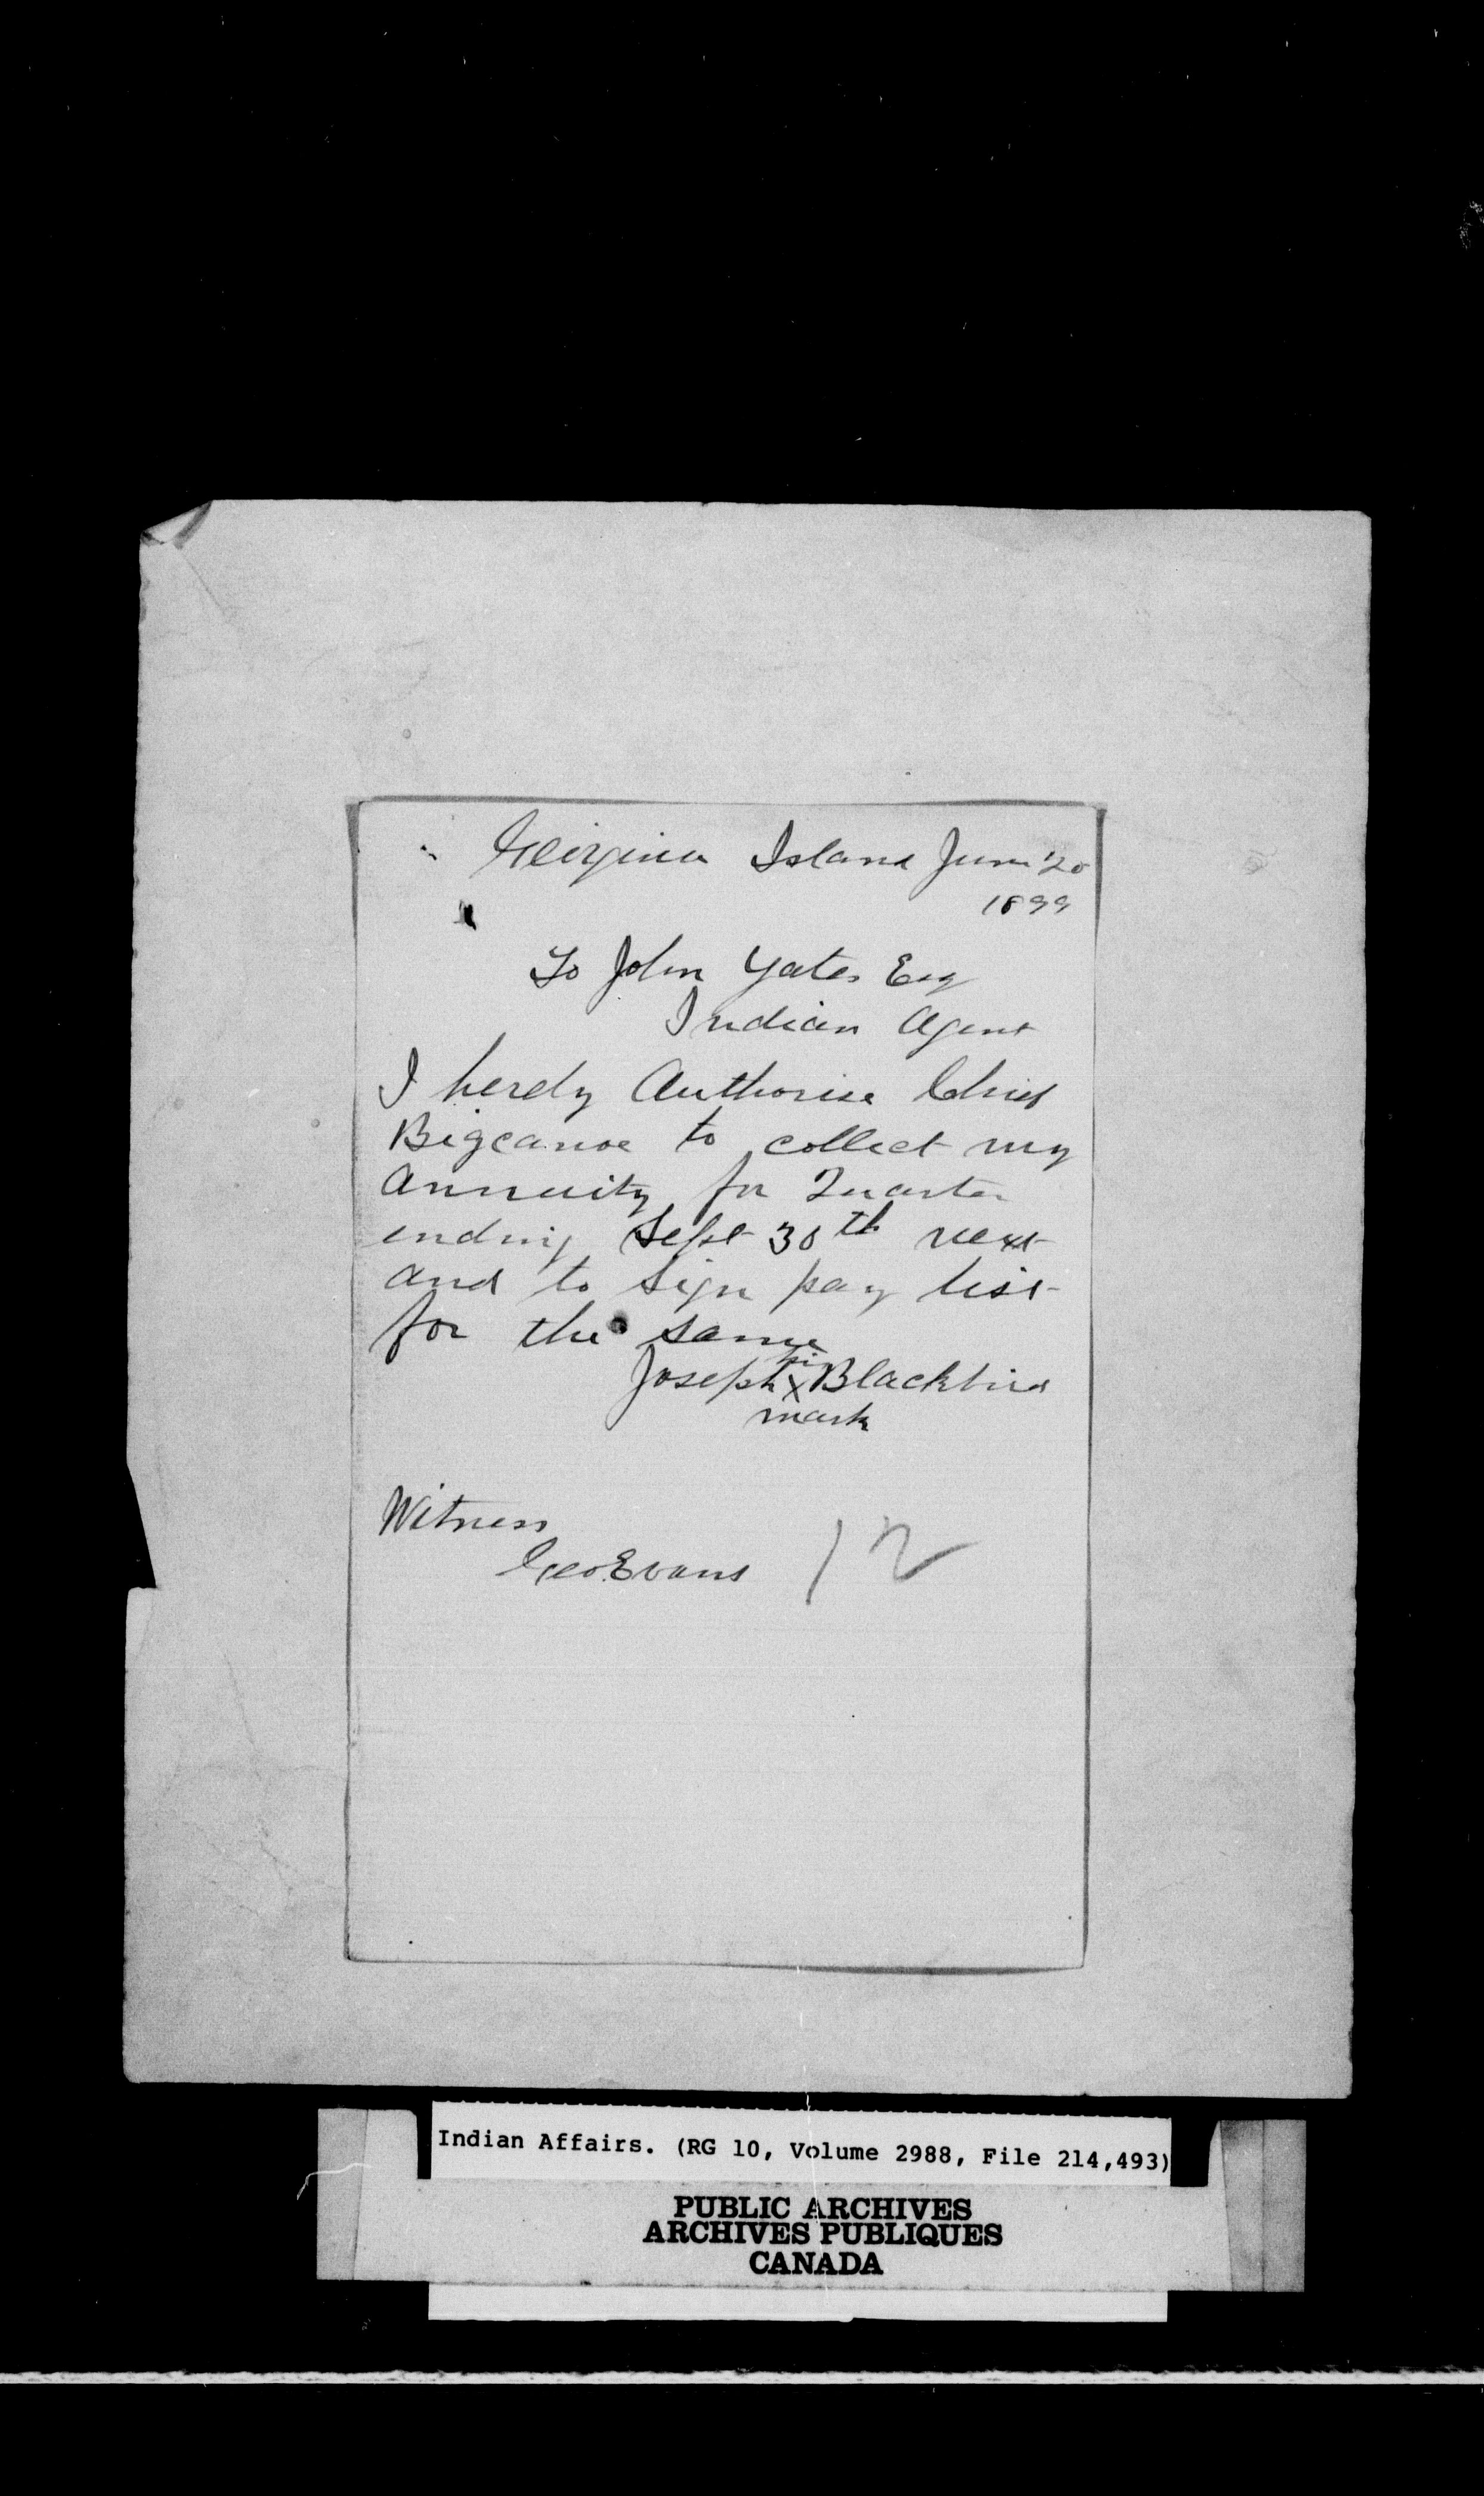 Georgina Island June 20
1899
To John Yates Esq
Indian Agent
I herely Authorise Chief
Bigcanoe to collect my
annuity for Quarter
ending Sept 30th next
and to sign pay list
for the same
his
Joseph X Blackbird
mark
Witness
Geo. Evans
12
Indian Affairs. (RG 10, Volume 2988, File 214,493)
PUBLIC ARCHIVES
ARCHIVES PUBLIQUES
CANADA